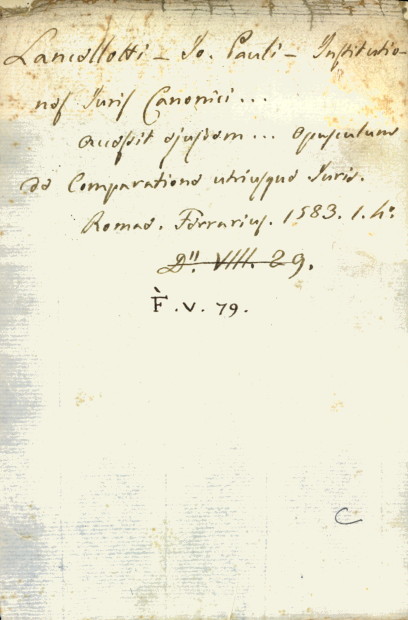 Lancellotti - Jo. Pauli - Institutio-
nes Juris Canonici...
accessit ejusdem... opusculum
de Comparatione utriusque Juris.
Romae. Ferrarius. 1583. 1. 4°
D". VIII. 29.
F̀. V. 79.
C